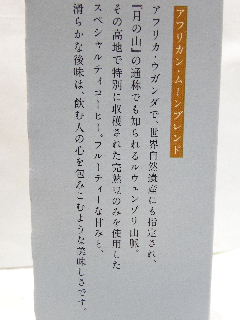 アフリカン・ムーンブレンド
アフリカ・ウガンダで、世界自然遺産にも指定され、
『月の山』の通称でも知られるルウェンゾリ山脈。
その高地で特別に収穫された完熟豆のみを使用した
スペシャルティコーヒー。フルーティーな甘みと、
滑らかな後味は、飲む人の心を包みこむような美味しさです。